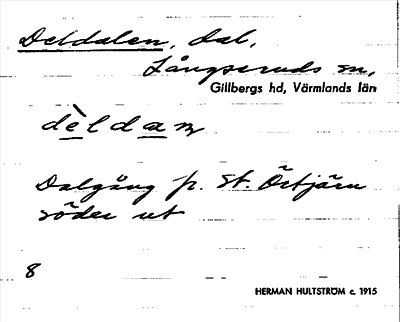 Deldalen, dal,
Långseruds sn,
Gillbergs hd, Värmlands län
dèldaɲ
Dalgång fr. St. Örtjärn
söder ut
8
HERMAN HULTSTRÖM c. 1915